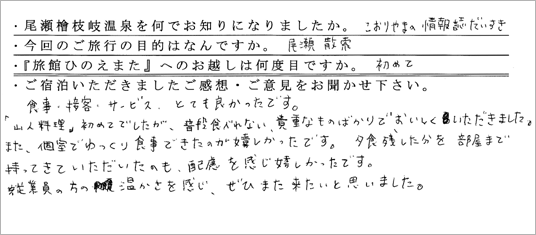 ・尾瀬檜枝岐温泉を何でお知りになりましたか。こおりやまの情報誌だいすき
・今回のご旅行の目的はなんですか。尾瀬 散策
・『旅館ひのえまた』へのお越しは何度目ですか。初めて
・ご宿泊いただきましたご感想・ご意見をお聞かせ下さい。
食事・接客・サービス、とても良かったです。
「山人料理」初めてでしたが、普段食べれない、貴重なものばかりでおいしくいただきました。
また、個室でゆっくり食事できたのが嬉しかったです。夕食残した分を部屋まで
持ってきていただいたのも、配慮を感じ嬉しかったです。
従業員の方の温かさを感じ、ぜひまた来たいと思いました。